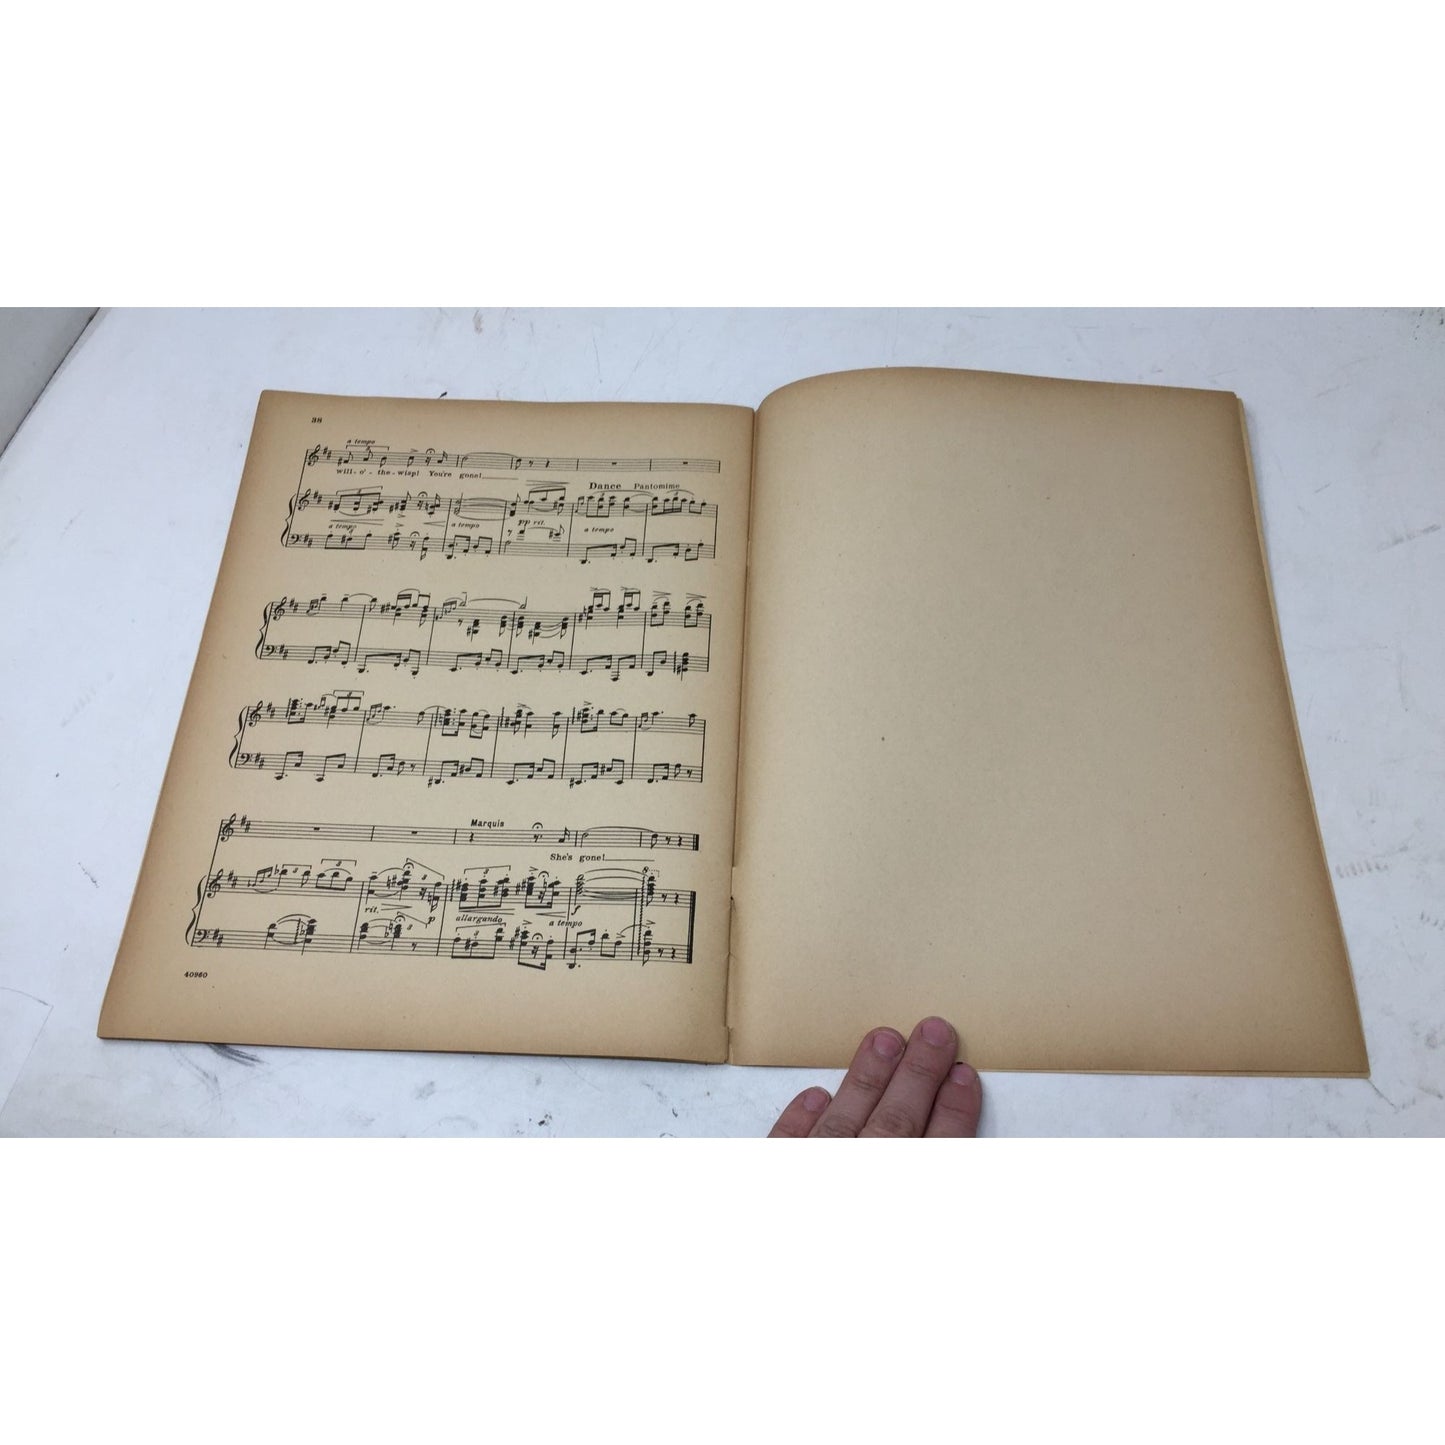 38
a tempo
will-o'-the-wisp! You're gone!
Dance Pantomime
a tempo a tempo pp rit. a tempo
3
Marquis
She's gone!
3 3 3 3 8
rit. p allargando a tempo f
3 3
40960